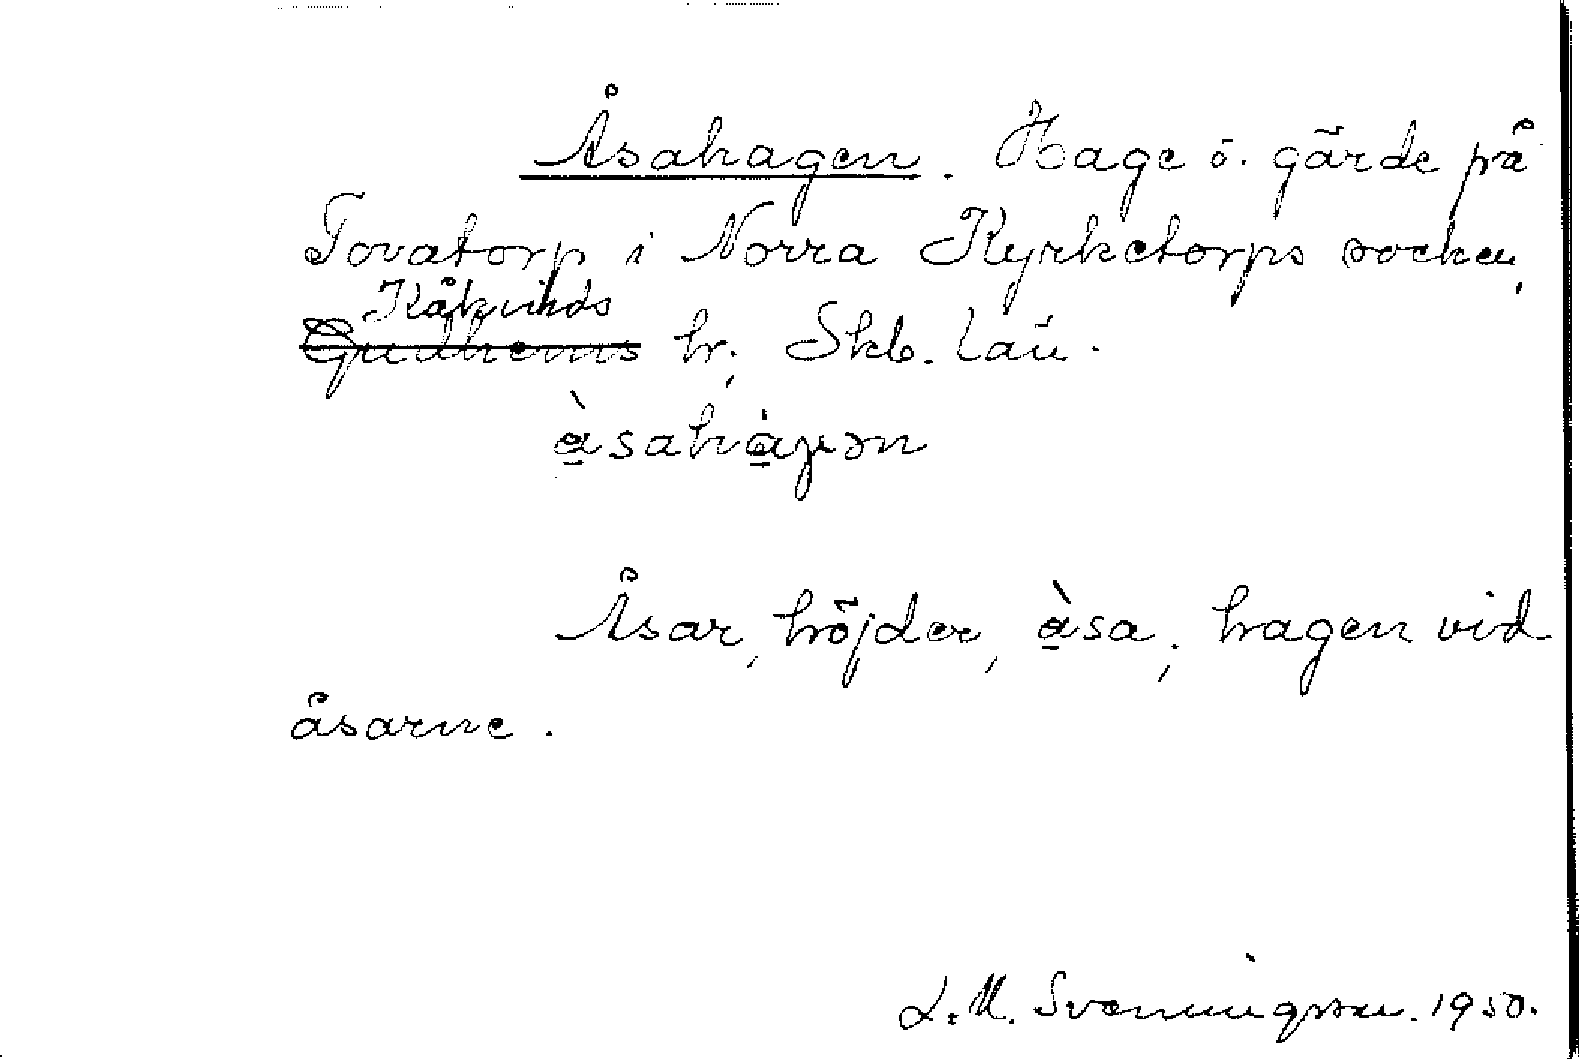 Åsahagen. Hage o. gärde på
Tovatorp i Norra Kyrketorps socken,
Kåkinds
Gudhems hr, Skb. län.
àsahàgən
Åsar, höjder, àsa; hagen vid
åsarne.
L. M. Svenningsson. 1950.